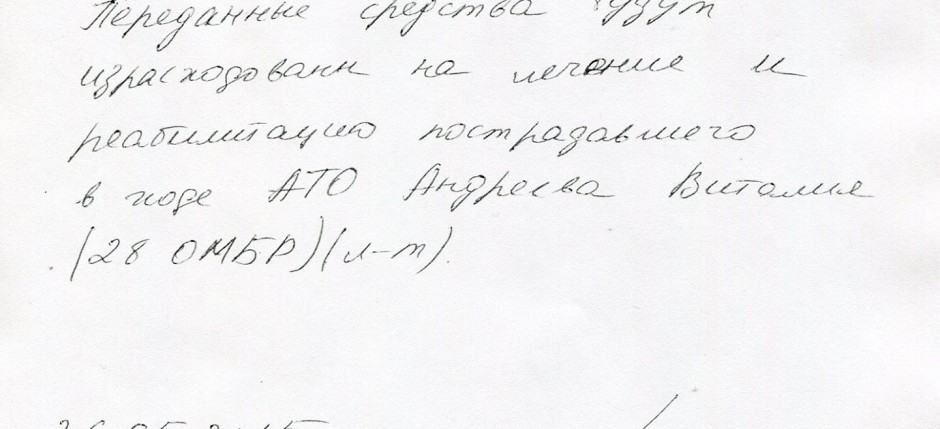 Переданные средства будут
израсходованы на лечение и
реабилитацию пострадавшего
в ходе АТО Андреева Виталия
(28 ОМБР)(л-т).